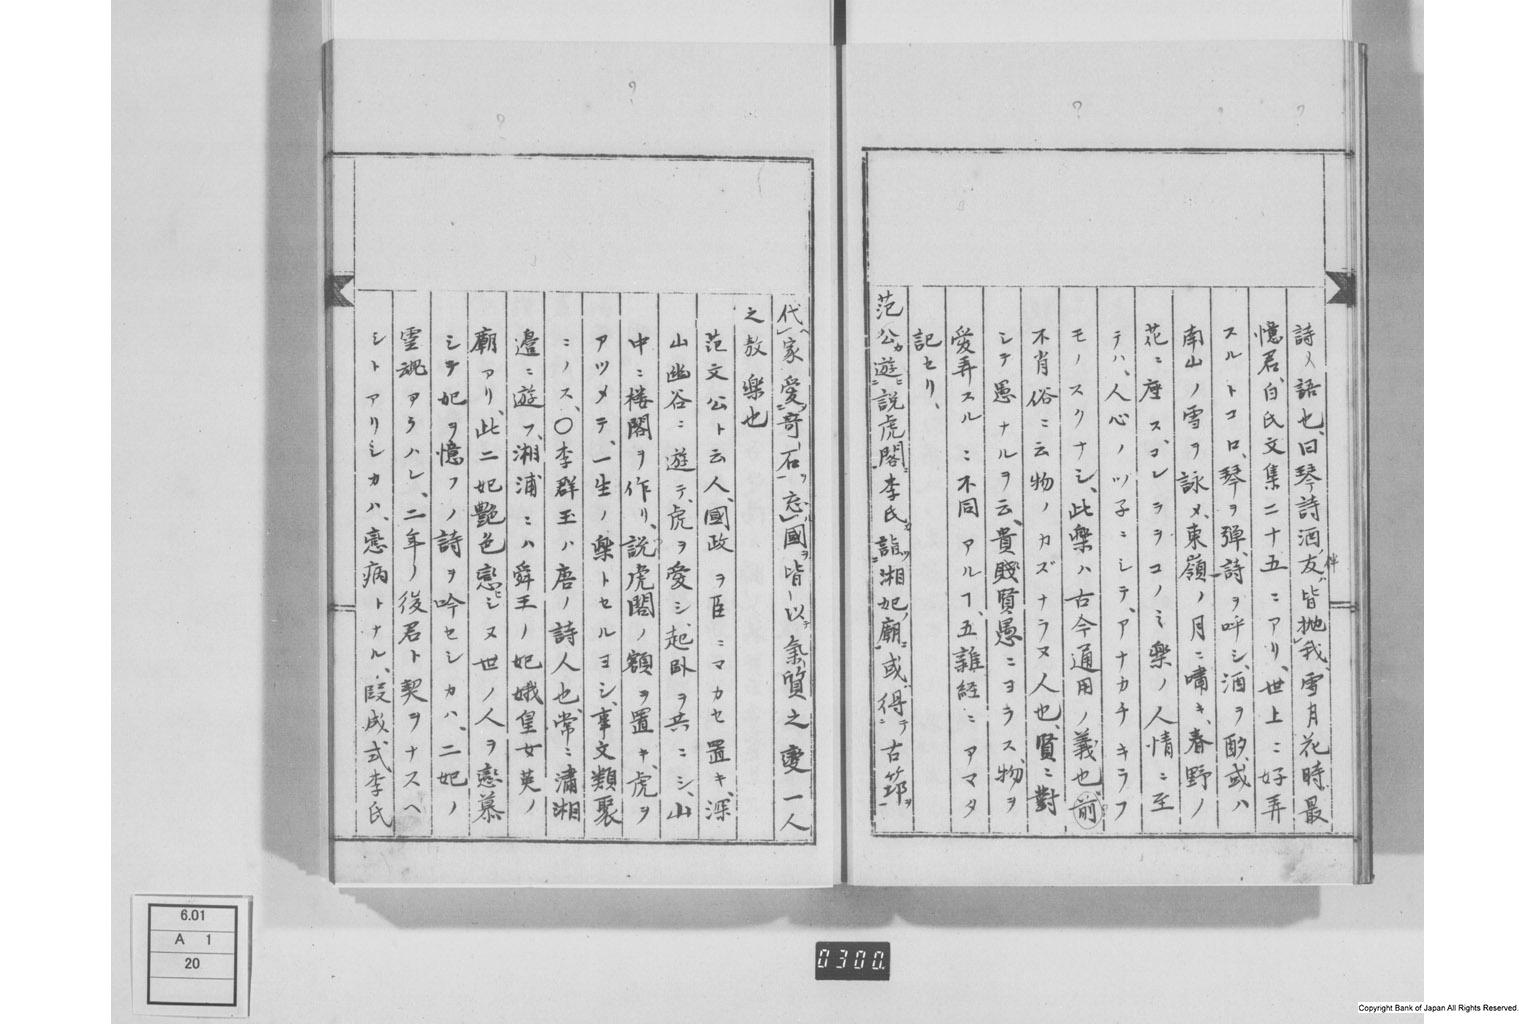 詩人語也、曰琴詩酒友皆抛我、雪月花時最
伴
憶君、白氏文集二十五ニアリ、世上ニ好弄
スルトコロ、琴ヲ弾、詩ヲ呼シ、酒ヲ酌、或ハ
南山ノ雪ヲ詠メ、東嶺ノ月ニ嘯キ、春野ノ
花ニ座ス、コレラヲコノミ樂ノ人情ニ至
テハ、人心ノツ子ニシテ、アナカチキラフ
モノスクナシ、此樂ハ古今通用ノ義也、前
不肖俗ニ云物ノカズナラヌ人也、賢ニ對
シテ愚ナルヲ云、貴賤賢愚ニヨラス、物ヲ
愛弄スルニ不同アルヿ、五雜経ニアマタ
記セリ、
范公カ遊ニ説虎閣ニ李氏カ詣ツ湘妃ノ廟ニ或ハ得テ古筇ヲ
代ヘ家ニ愛シ奇石ヲ忘ル國ヲ皆以テ氣質之変一人
之敖樂也
范文公ト云人、國政ヲ臣ニマカセ置キ、深
山幽谷ニ遊テ、虎ヲ愛シ、起臥ヲ共ニシ、山
中ニ楼閣ヲ作リ、説虎閣ノ額ヲ置キ、虎ヲ
アツメテ、一生ノ樂トセルヨシ、事文類聚
ニノス、〇李群玉ハ唐ノ詩人也、常ニ瀟湘
邉ニ遊フ、湘浦ニハ舜王ノ妃娥皇女英ノ
廟アリ、此二妃艶色戀ヒシヌ世ノ人ヲ戀慕
シテ妃ヲ憶フノ詩ヲ吟セシカハ、二妃ノ
霊魂アラハレ、二年ノ後君ト契ヲナスヘ
シトアリシカハ、戀病トナル、段成式李氏
6.01
A 1
20
0300.
Copyright Bank of Japan All Rights Reserved.